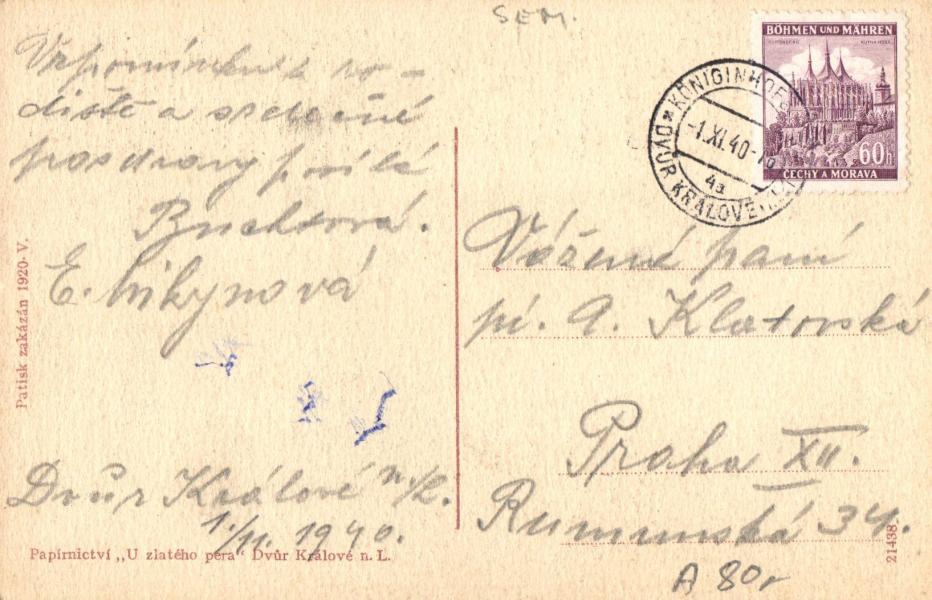 SEM.
BÖHMEN UND MÄHREN
60h
ČECHY A MORAVA
KÖNIGINHOF
-1.XI.40
4a
DVŮR KRÁLOVÉ
Vzpomínku z ro-
diště a srdečné
pozdravy posílá
Buchtová.
E.
Dvůr Králové n./L.
1./11. 1940.
Patisk zakázán 1920-V.
Papírnictví „U zlatého pera" Dvůr Králové n. L.
Vážená paní
pí. A. Klatovská
Praha XII.
Rumunská 34.
21438
A 80,-